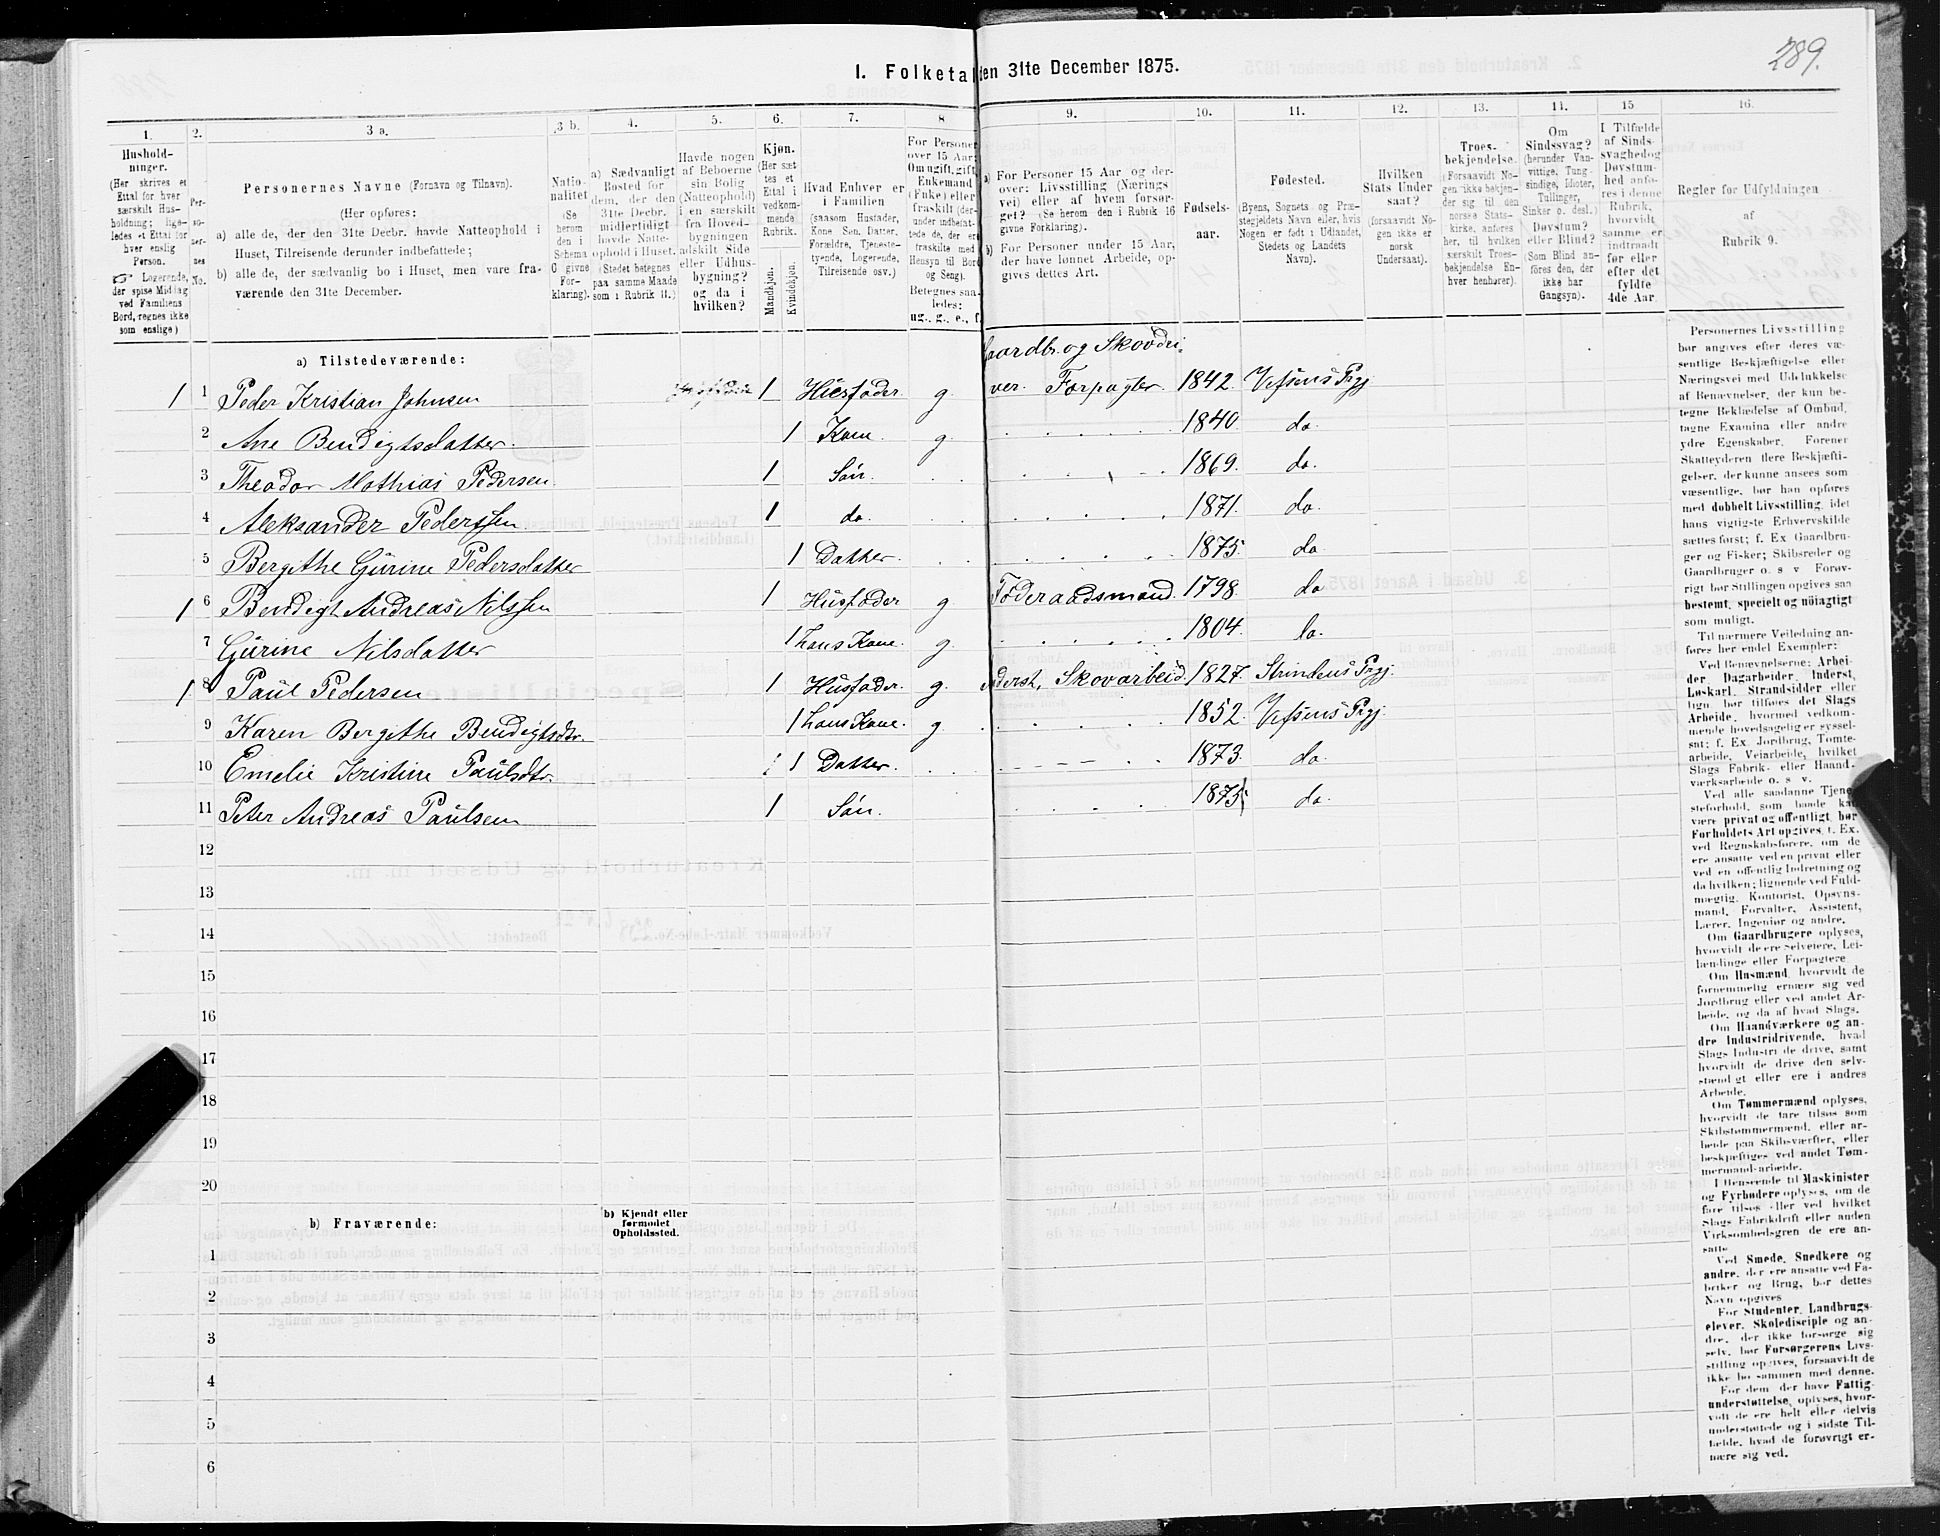 I. Folketal den 31te December 1875.
289.
1. 2. 3 a. 3 b. 4. 5. 6. 7. 8 9. 10. 11. 12. 13. 14. 15 16.
Hushold-
ninger.
(Her skrives et
Ettal for hver
særskilt Hus-
holdning; lige-
ledes et Ettal for
hver enslig
Person.
☞ Logerende,
der spise Middag
ved Familiens
Bord, regnes ikke
som enslige)
Per-
so-
ner-
nes
No.
Personernes Navne (Fornavn og Tilnavn).
(Her opføres:
a) alle de, der den 31te Decbr. havde Natteophold i
Huset, Tilreisende derunder indbefattede;
b) alle de, der sædvanlig bo i Huset, men vare fra-
værende den 31te December.
Natio-
nalitet
(Se
herom
den i
Schema
O givne
For-
klaring).
a) Sædvanligt
Bosted for
dem, der den
31te Decbr.
midlertidigt
havde Natte-
ophold i Huset.
(Stedet betegnes
paa samme Maade
som i Rubrik 11.)
Havde nogen
af Beboerne
sin Bolig
(Natteophold)
i en særskilt
fra Hoved-
bygningen
adskilt Side
eller Udhus-
bygning?
og da i
hvilken?
Kjøn.
(Her sæt
tes et
Ettal i
vedkom-
mende
Rubrik.
Mandkjøn.
Kvindekjøn.
Hvad Enhver er
i Familien
(saasom Husfader,
Kone, Søn, Datter,
Forældre, Tjeneste-
tyende, Logerende,
Tilreisende osv.)
For Personer
over 15 Aar:
Om ugift, gift,
Enkemand
(Enke) eller
fraskilt (der-
under indbefat-
tede de, der ere
fraskilte med
Hensyn til Bord
og Seng).
Betegnes saa-
ledes:
ug., g., e., f.
a) For Personer 15 Aar og der-
over: Livsstilling (Nærings-
vei) eller af hvem forsør-
get? (Se herom den i Rubrik 16
givne Forklaring).
b) For Personer under 15 Aar,
der have lønnet Arbeide, op-
gives dettes Art.
Fødsels-
aar.
Fødested.
(Byens, Sognets og Præ-
stegjeldets Navn eller, hvis
Nogen er født i Udlandet,
Stedets og Landets
Navn).
Hvilken
Stats Under
saat?
(forsaavidt No-
gen ikke er
norsk
Undersaat).
Troes-
bekjendelse.
(Forsaavidt No-
gen ikke bekjen-
der sig til den
norske Stats-
kirke, anføres
her, til hvilken
særskilt Troes-
bekjendelse En-
hver henhører).
Om
Sindssvag?
(herunder Van-
vittige, Tung-
sindige, Idioter,
Tullinger,
Sinker o. desl.)
Døvstum?
eller Blind?
(Som Blind an-
føres den, der
ikke har
Gangsyn).
I Tilfælde
af Sinds-
svaghed og
Døvstum-
hed anfø-
res i denne
Rubrik,
hvorvidt
samme er
indtraadt
før eller
efter det
fyldte
4de Aar.
Regler for Udfyldningen
af
Rubrik 9.
a) Tilstedeværende:
Gaardbr. og Skovdri-
1 1 Peder Kristian Johnsen 1 Husfader g ver. Forpagter 1842. Vefsens Prgj
2 Ane Bendigtsdatter. 1 Kone. g. 1840. do.
3 Theodor Mathias Pedersen. 1 Søn. 1869. do.
4 Aleksander Pederssen. 1 do. 1871. do.
5 Bergithe Gurine Pedersdatter 1 Datter. 1875. do
1 6 Bendigt Andreas Nilssen 1 Husfader g Føderaadsmand. 1798. do
7 Gurine Nilsdatter 1 hans Kone. g. 1804. do.
1 8 Paul Pedersen 1 Husfader. g. Inderst, Skovarbeid. 1827. Strindens Prgj.
9 Karen Bergithe Bendigtsdtr. 1 hans Kone. g. 1852. Vefsens Prgj.
10 Emelie Kristine Paulsdtr. 1 Datter. 1873. do.
11 Peter Andreas Paulsen 1 Søn. 1875 do.
12
13
14
15
16
17
18
19
20
b) Fraværende:
b) Kjendt eller
formodet
Opholdssted.
1
2
3
4
5
6
Personernes Livsstilling
bør angives efter deres væ-
sentlige Beskjæftigelse eller
Næringsvei med Udelukkelse
af Benævnelser, der kun be-
tegne Beklædelse af Ombud,
tagne Examina eller andre
ydre Egenskaber. Forener
Skatteyderen flere Beskjæfti-
gelser, der kunne ansees som
væsentlige, bør han opføres
med dobbelt Livsstilling, idet
hans vigtigste Erhvervskilde
sættes først; f. Ex. Gaardbru-
ger og Fisker; Skibsreder og
Gaardbruger o. s. v. Forøv-
rigt bør Stillingen opgives saa
bestemt, specielt og nøiagtigt
som muligt.
Til nærmere Veiledning an-
føres her endel Exempler:
Ved Benævnelserne: Arbei-
der, Dagarbeider, Inderst,
Løskarl, Strandsidder eller
lign. bør tilføies det Slags
Arbeide, hvormed vedkom-
mende hovedsagelig er syssel-
sat; f. Ex. Jordbrug, Tomte-
arbeide, Veiarbeide, hvilket
Slags Fabrik- eller Haand-
værksarbeide o. s. v.
Ved alle saadanne Tjene-
steforhold, som baade kan
være privat og offentligt, bør
Forholdets Art opgives, t. Ex.
ved Regnskabsførere, om de
ere ansatte ved en privat eller
ved en offentlig Indretning og
da hvilken; lignende ved Fuld-
mægtig, Kontorist, Opsyns-
mand, Forvalter, Assistent,
Lærer, Ingeniør og andre.
Om Gaardbrugere oplyses,
hvorvidt de ere Selveiere, Lei-
lændinge eller Forpagtere.
Om Husmænd, hvorvidt de
fornemmelig ernære sig ved
Jordbrug eller ved andet Ar-
beide, og da af hvad Slags.
Om Haandværkere og an-
dre Industridrivende, hvad
Slags Industri de drive, samt
hvorvidt de drive den selv-
stændigt eller ere i andres
Arbeide.
Om Tømmermænd oplyses,
hvorvidt de fare tilsøs som
Skibstømmermænd, eller ar-
beide paa Skibsværfter, eller
beskjæftiges ved andet Tøm-
mermandsarbeide.
I Henseende til Maskinister
og Fyrbødere oplyses, om de
fare tilsøs eller ved hvilket
Slags Fabrikdrift eller anden
Virksomhedsgren de ere an-
satte.
Ved Smede, Snedkere og
andre, der ere ansatte ved Fa-
briker og Brug, bør dettes
Navn opgives.
For Studenter, Landbrugs-
elever, Skoledisciple og an-
dre, der ikke forsørge sig
selv, bør Forsørgerens Livs-
stilling opgives, forsaavidt de
ikke bo sammen med denne.
For dem, der have Fattig-
understøttelse, oplyses, hvor-
vidt de ere helt eller delvis
understøttede og i sidste Til-
fælde, hvad de forøvrigt er-
nære sig ved.